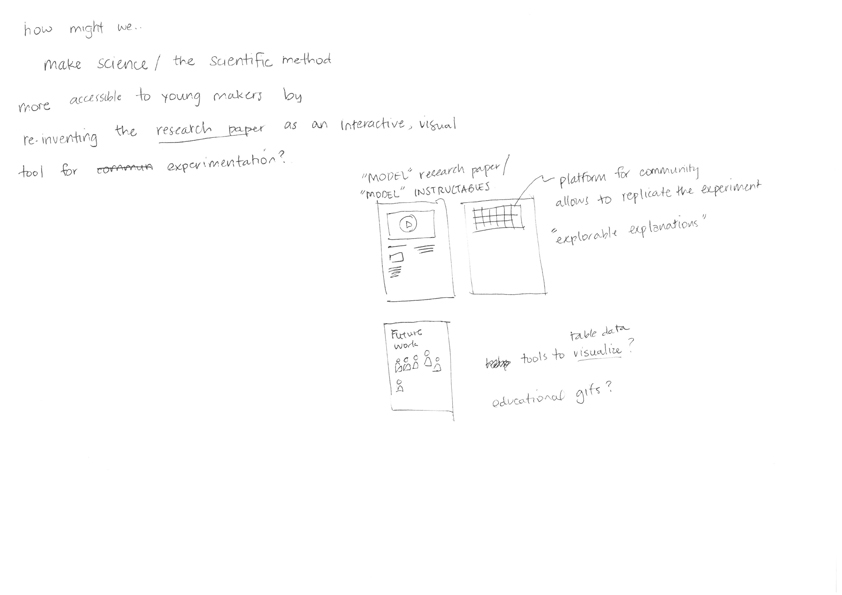 how might we..
make science/ the scientific method
more accessible to young makers by
re-inventing the research paper as an interactive, visual
tool for commun experimentation?
"MODEL" research paper/
"MODEL" INSTRUCTABLES
platform for community
allows to replicate the experiment
"explorable explanations"
Future
work
table data
tools to visualize?
educational gifs?